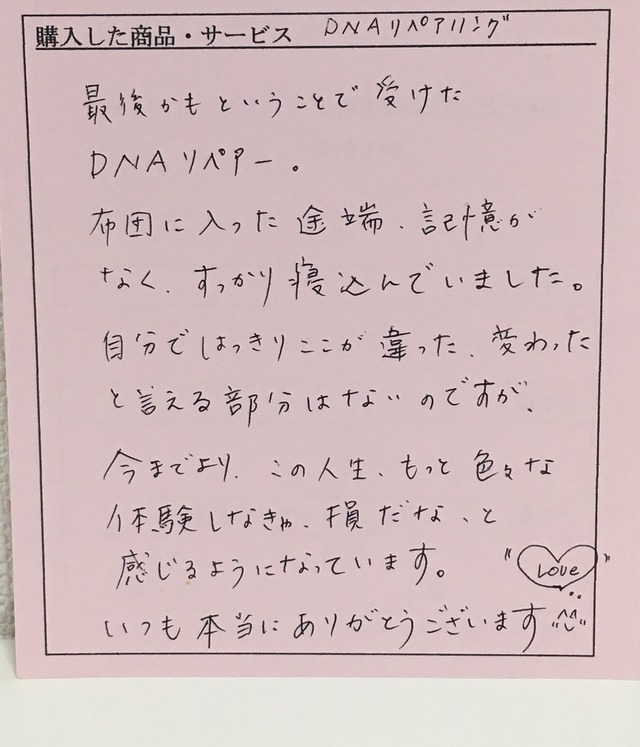 購入した商品・サービス DNAリペアリング
最後かもということで受けた
DNAリペアー。
布団に入った途端、記憶が
なく、すっかり寝込んでいました。
自分ではっきりここが違った、変わった
と言える部分はないのですが、
今までより、この人生、もっと色々な
体験しなきゃ、損だな、と
感じるようになっています。
"Love"
いつも本当にありがとうございます